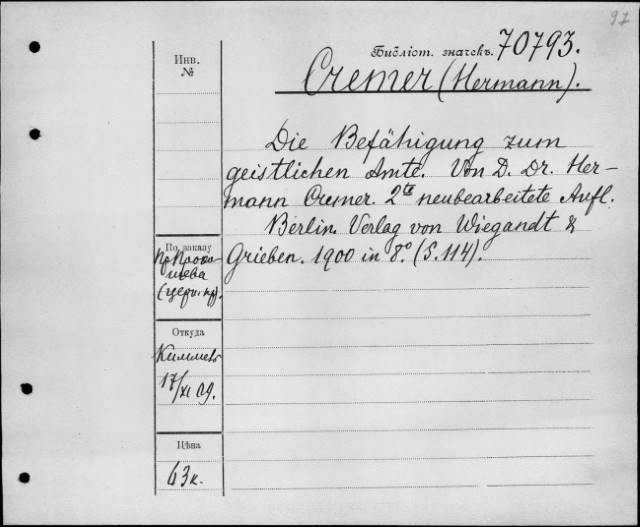 97
Библіот. значекъ. 70793.
Cremer (Hermann).
Инв.
№
Die Befähigung zum
geistlichen Amte. Von D. Dr. Her-
mann Cremer. 2te neubearbeitete Aufl.
Berlin. Verlag von Wiegandt &
Grieben. 1900 in 8.° (S. 114).
По заказу
(церк. пр).
Откуда
Киммель
17/XI 09.
Цѣна
63 к.